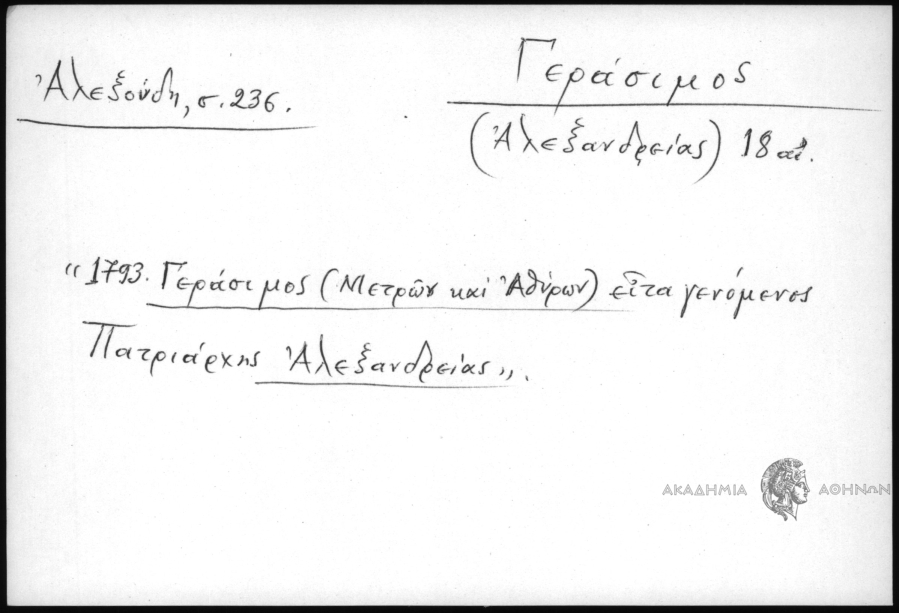 Ἀλεξούδη, σ. 236.
Γεράσιμος
(Ἀλεξανδρείας) 18 αἰ.
“1793. Γεράσιμος (Μετρῶν καὶ Ἀθύρων) εἶτα γενόμενος
Πατριάρχης Ἀλεξανδρείας”.
ΑΚΑΔΗΜΙΑ ΑΘΗΝΩΝ